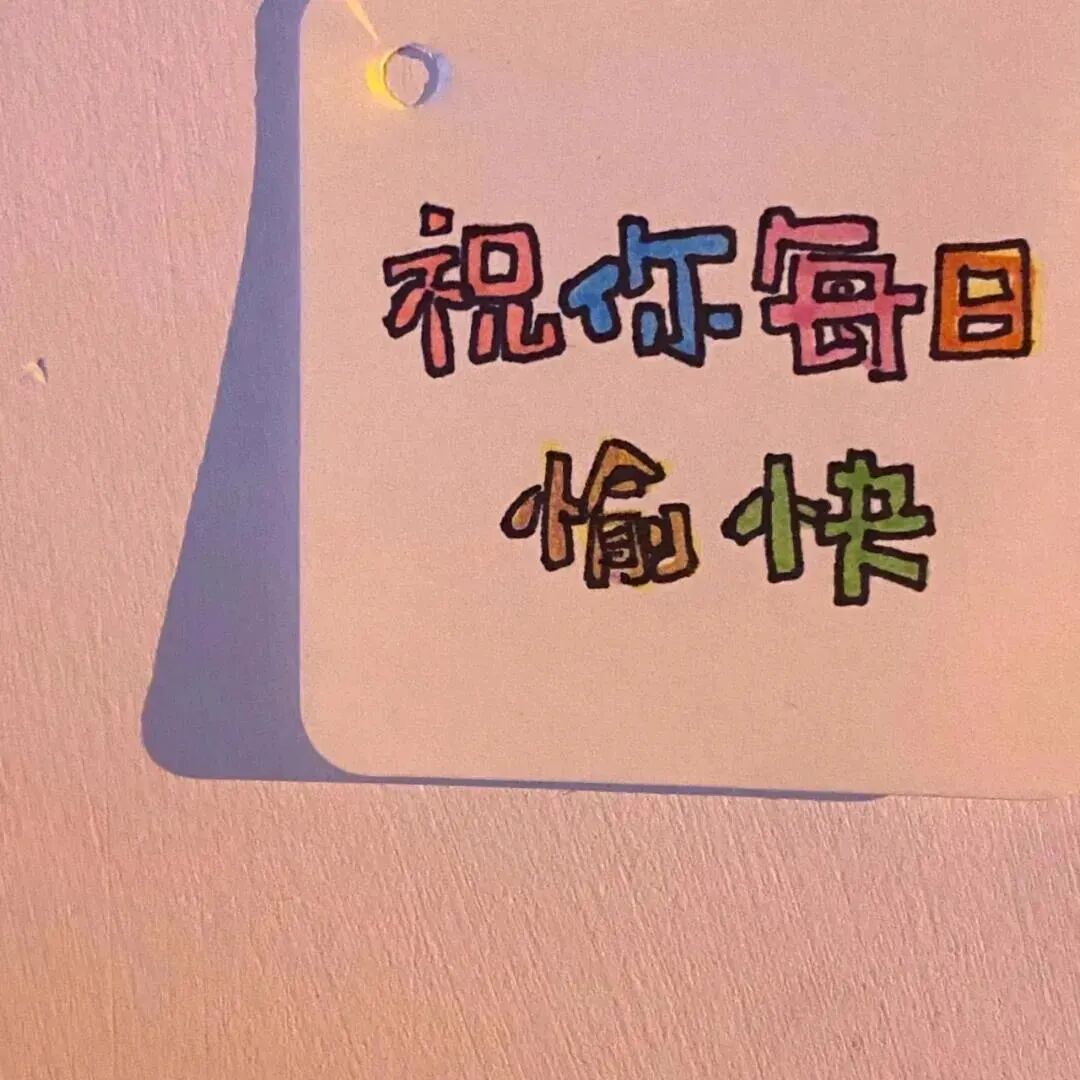 祝你每日
愉快